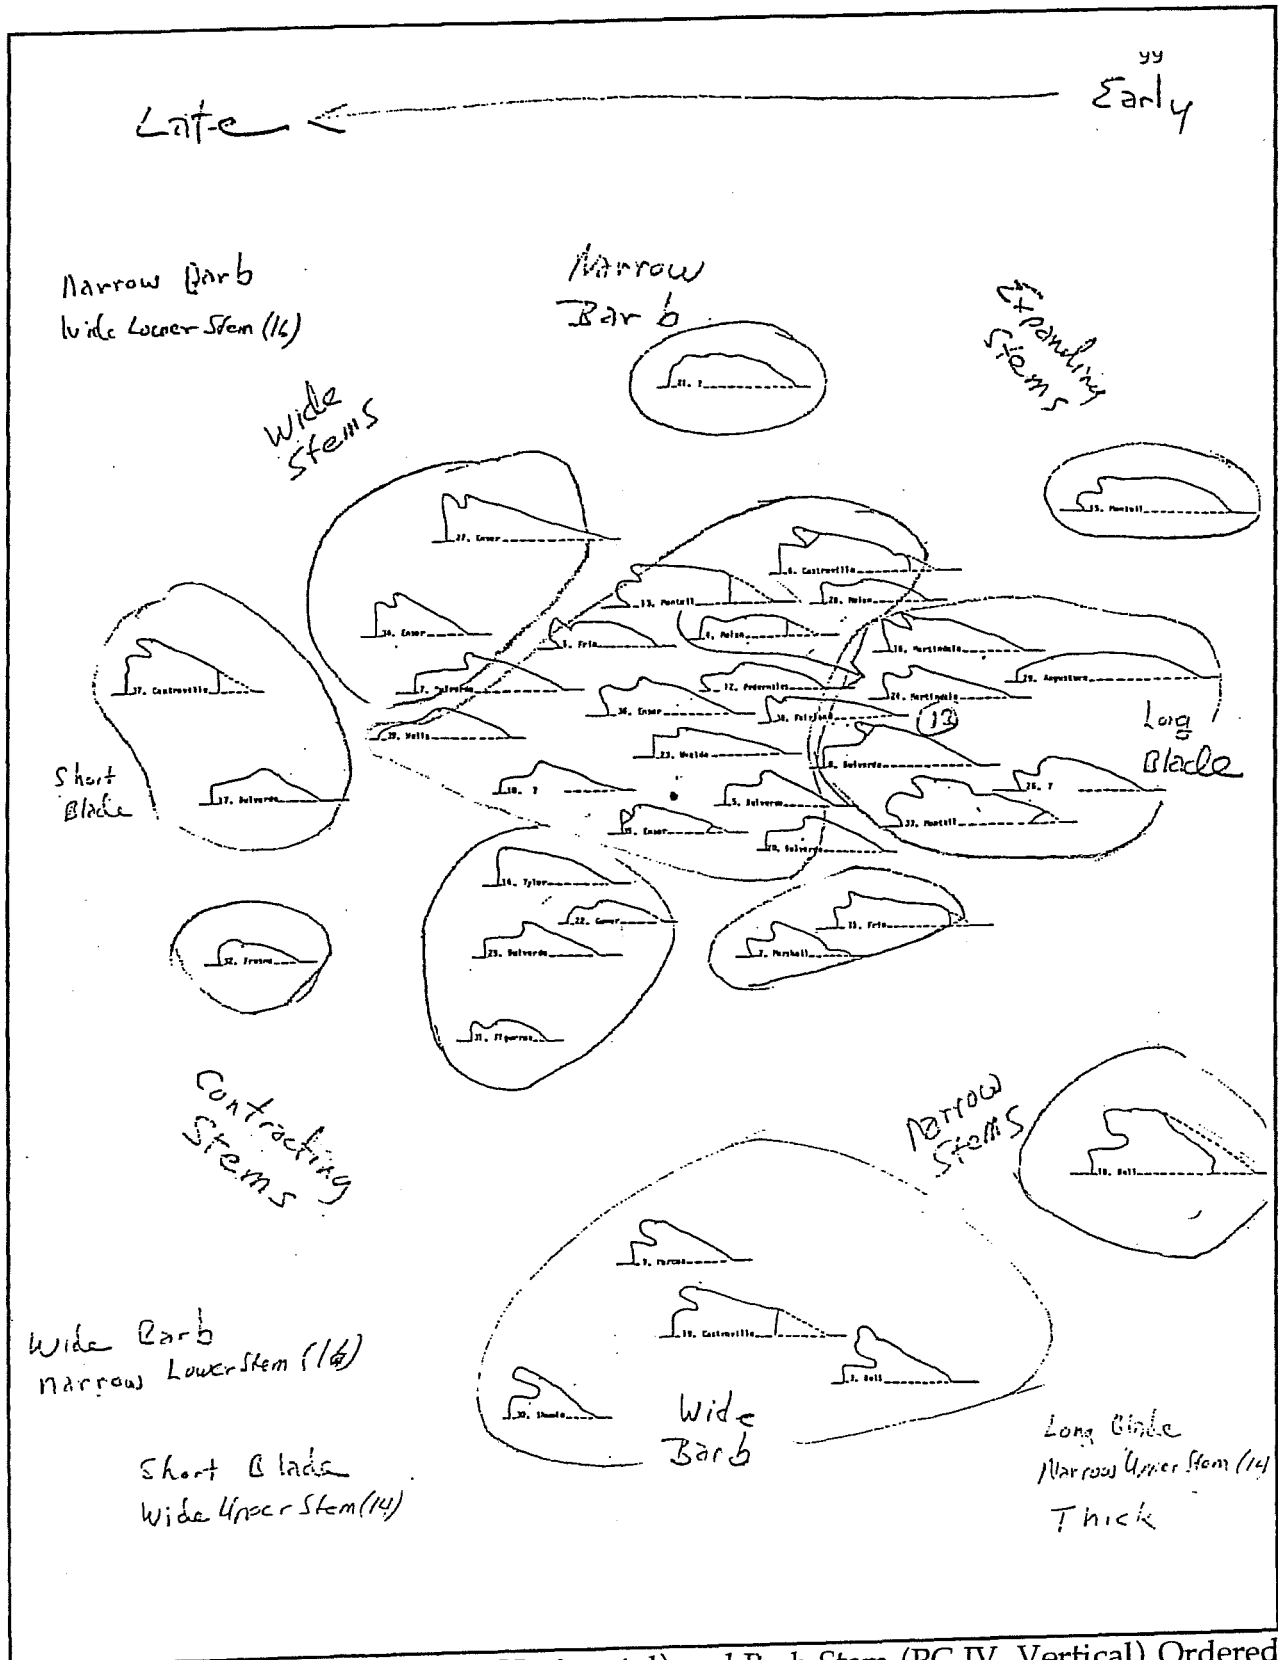 yy
Early
Late
Narrow Barb
Wide Lower Stem (16)
Narrow
Barb
Expanding
Stems
Wide
Stems
21. ?
15. Montell
27. Ensor
6. Castroville
13. Montell
28. Nolan
34. Ensor
5. Frio
4. Nolan
16. Martindale
37. Castroville
7. Bulverde
12. Pedernales
29. Angostura
24. Martindale
36. Ensor
30. Fairland
13
Long
Blade
39. Wells
23. Uvalde
8. Bulverde
Short
Blade
17. Bulverde
18. ?
5. Bulverde
26. ?
33. Montell
Ensor
Bulverde
14. Tylor
22. Gower
35. Frio
25. Bulverde
2. Marshall
32. Fresno
31. Figueroa
Contracting
Stems
Narrow
Stems
10. Bell
9. Marcos
19. Castroville
3. Bell
Wide Barb
Narrow Lower Stem (16)
Shumla
Wide
Barb
Long Blade
Short Blade
Narrow Upper Stem (14)
Wide Upper Stem (14)
Thick
and Barb-Stem (PC IV, Vertical) Ordered